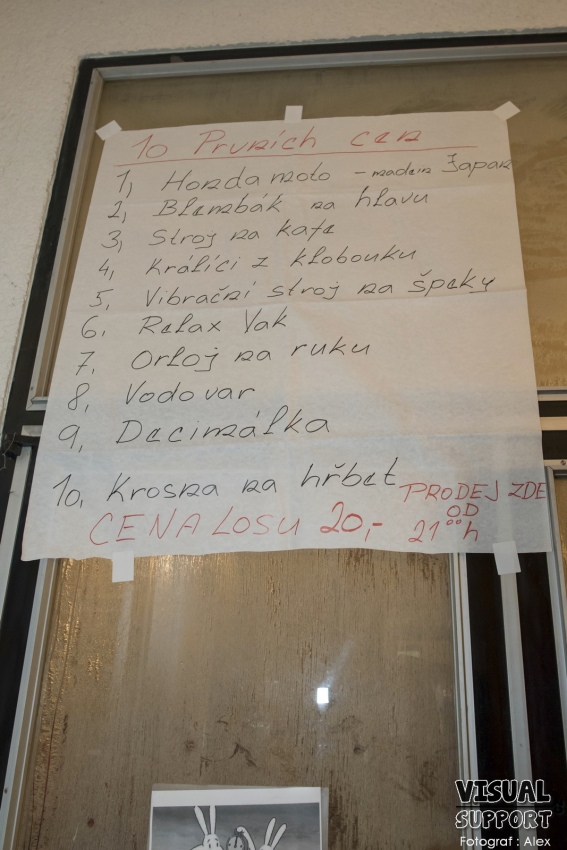 10 Prvních cen
1, Honda moto - madein Japan
2, Blembák na hlavu
3, Stroj na kafe
4, Králíci z klobouku
5, Vibrační stroj na špeky
6, Relax Vak
7, Orloj na ruku
8, Vodovar
9, Decimálka
10, Krosna na hřbet
PRODEJ ZDE
OD
21ººh
CENA LOSU 20,-
VISUAL
SUPPORT
Fotograf : Alex